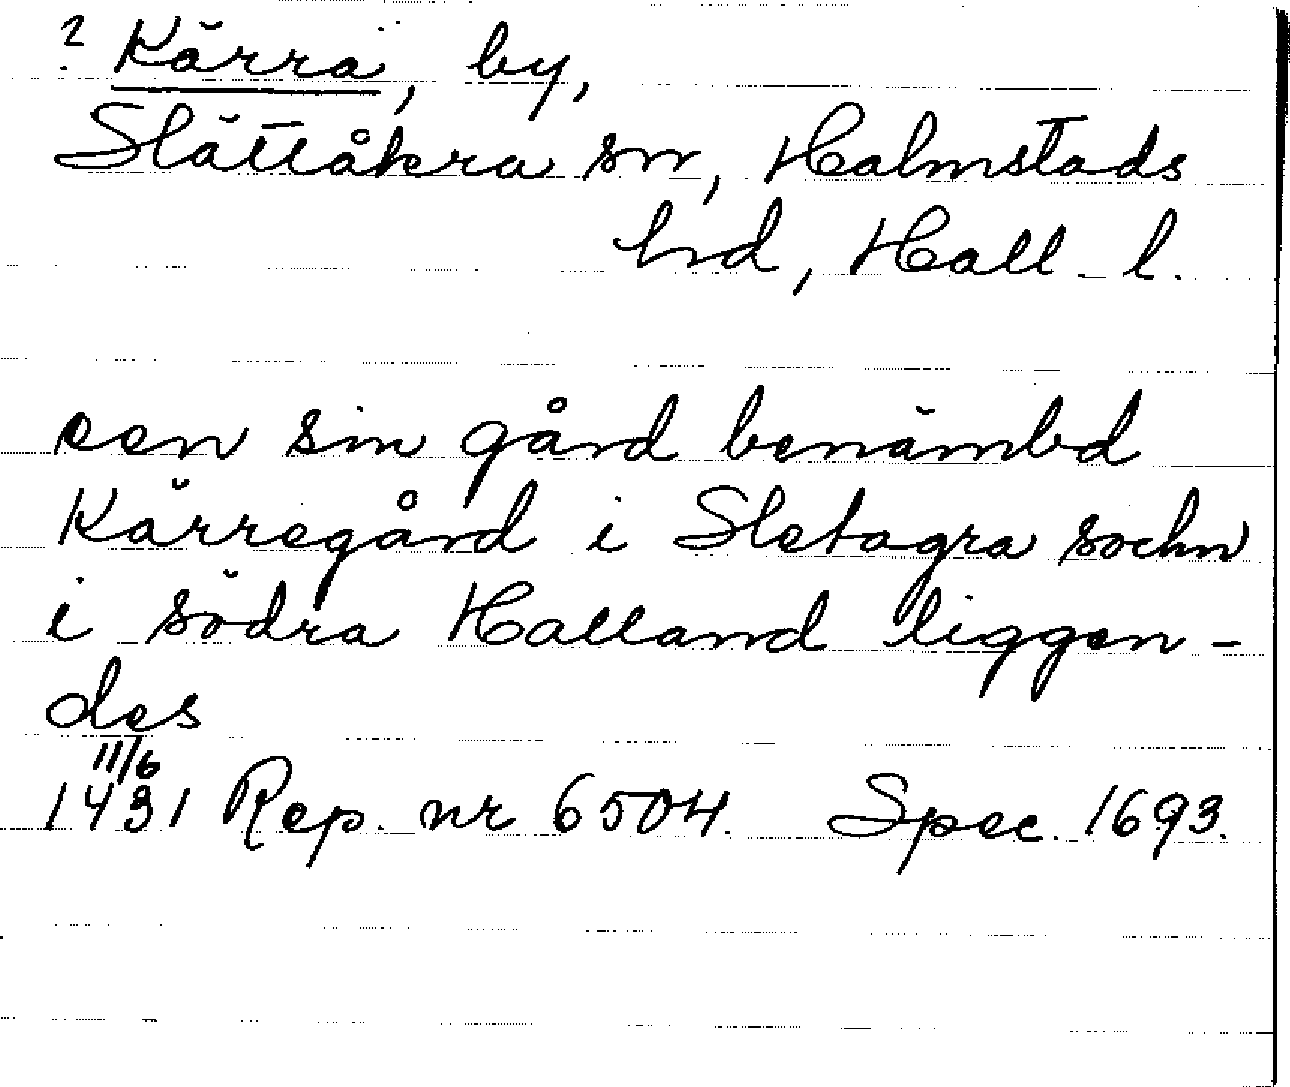 ? Kärra, by,
Slättåkra sn, Halmstads
hd, Hall. l.
een sin gård benämbd
Kärregård i Sletagra sochn
i södra Halland liggen-
des
11/6
1431 Rep. nr 6504. Spec. 1693.